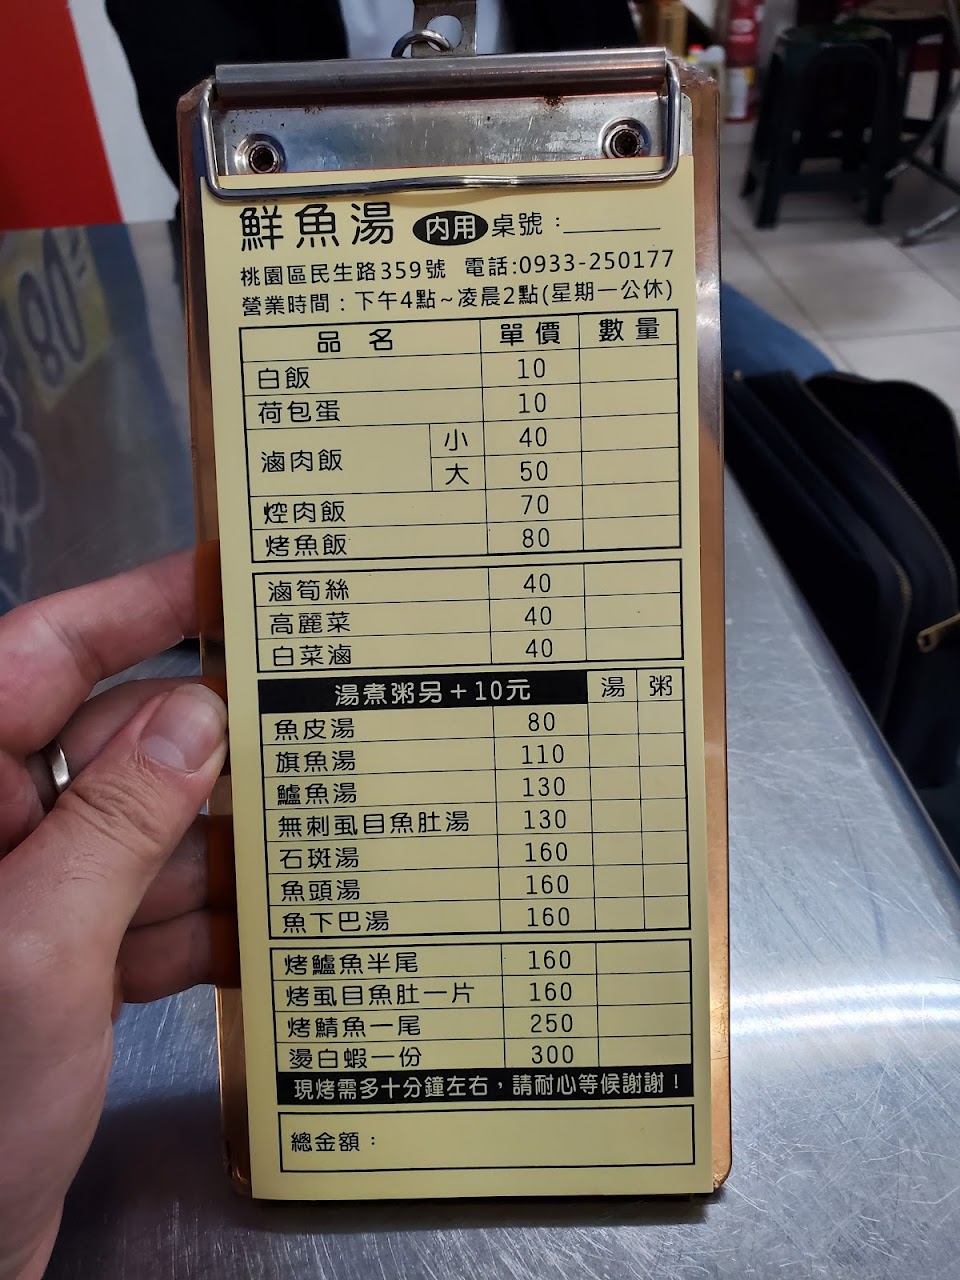 鮮魚湯 內用 桌號：
桃園區民生路359號 電話:0933-250177
營業時間：下午4點~凌晨2點(星期一公休)
品名 單價 數量
白飯 10
荷包蛋 10
滷肉飯 小 40
大 50
焢肉飯 70
烤魚飯 80
滷筍絲 40
高麗菜 40
白菜滷 40
湯煮粥另+10元 湯 粥
魚皮湯 80
旗魚湯 110
鱸魚湯 130
無刺虱目魚肚湯 130
石斑湯 160
魚頭湯 160
魚下巴湯 160
烤鱸魚半尾 160
烤虱目魚肚一片 160
烤鯖魚一尾 250
燙白蝦一份 300
現烤需多十分鐘左右，請耐心等候謝謝！
總金額：